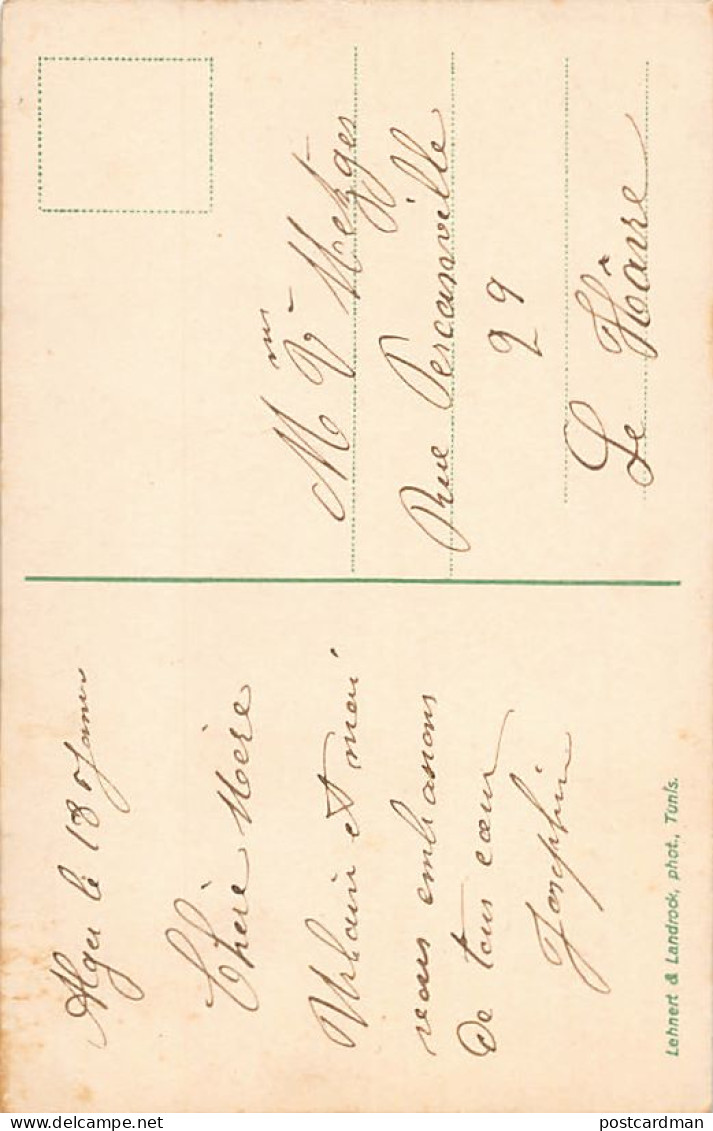 Alger le 18 Janvier
Chère Mère
Urbain et moi
vous embrassons
De tous cœur
Josephine
Mme Vve Metzger
Rue Percanville
29
Le Hâvre
Lehnert & Landrock, phot., Tunis.
postcardman